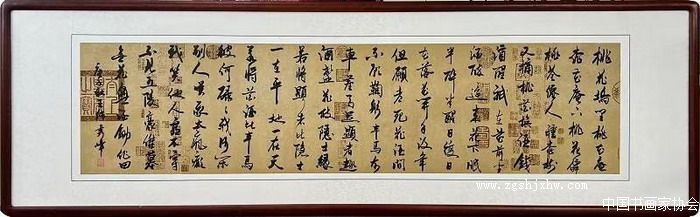 桃花坞里桃花庵
桃花庵下桃花仙
桃花仙人種桃树
又摘桃花换酒錢
酒醒只在花前坐
酒醉還来花下眠
半醉半醒日復日
花落花開年復年
但願老死花酒間
不願鞠躬車馬前
車塵馬足顯者趣
酒盞花枝隱士緣
若將顯者比隱士
一在平地一在天
若將花酒比車馬
彼何碌碌我何閑
别人笑我太瘋癲
我笑他人看不穿
不見五陵豪傑墓
無花無酒鋤作田
www.zgshjxhw.com
中国书画家协会